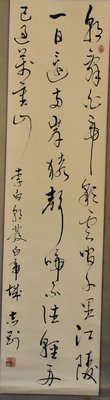 朝辭白帝彩雲間千里江陵
一日還兩岸猿聲啼不住輕舟
已過萬重山
李白朝發白帝城